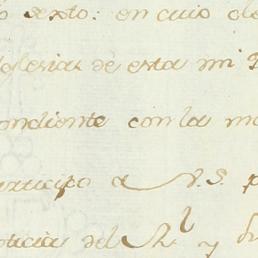 sexto: en cuio
Iglesias de esta mi
ondiente con la
articipo a V.S. p
oticia del Rl. y